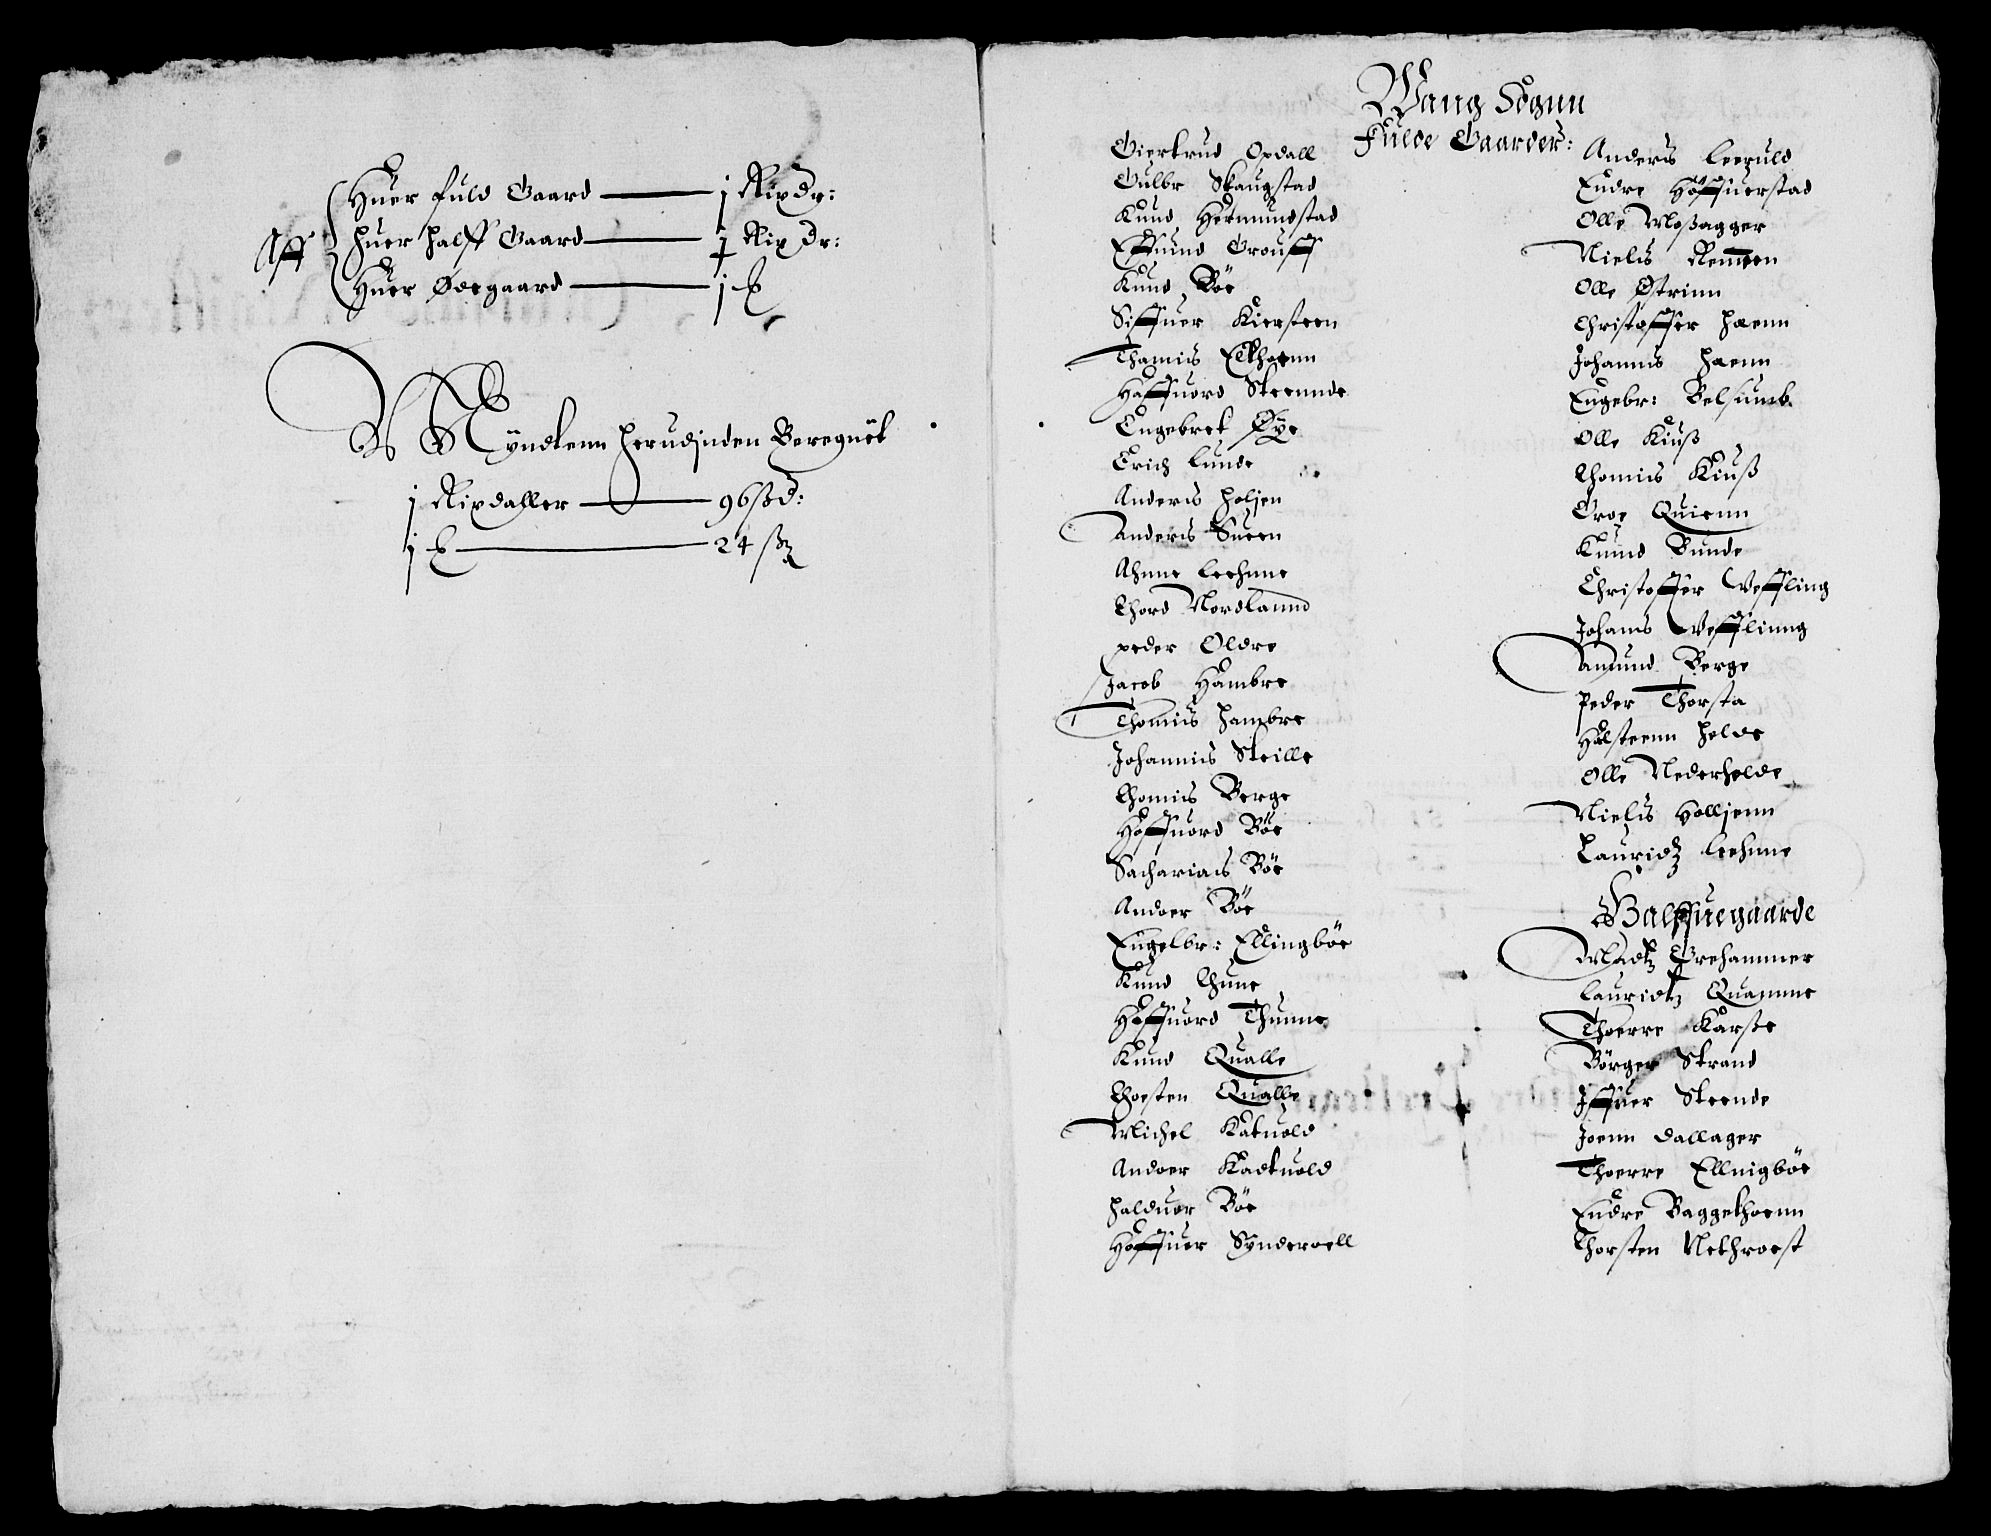 Aff
Huer fuld Gaard — j Rixdr:
Huer halff Gaard — Rix dr:
Huer Ødegaard — j
Myndtenn herudjnden Beregnet
j Rixdaller — 96 ß d:
j — 24 ß
Wang Sognn
Fulde Gaarder:
Giertrud Opdall
Gulbr Skaugstad
Knud Hermundstad
Effuind Grouff
Knud Böe
Siffuer Kiersteen
Thamis Elthoenn
Haffuord Steennde
Engebret Øye
Erich Lunde
Anders Holjen
Anders Sueen
Ahnne Leehnne
Thord Nordlannd
peder Oldre
Jacob Hambre
Thomis Hambre
Johannis Skeille
Thomis Berge
Haffuord Böe
Sacharias Böe
Andoer Böe
Engelbr: Ellingböe
Knud Thune
Haffuord Thunne
Knud Qualle
Thosten Qualle
Michel Katuold
Andoer Kadtuold
Halduor Böe
Haffuer Synderoell
Anders Leeruld
Endre Höffuerstad
Olle Moßagger
Niels Remmen
Olle Østrinn
Christoffer Haenn
Johannis Haenn
Engebr: Belsumb
Olle Kiuß
Thomis Kiuß
Groe Quienn
Knud Bunde
Christoffer Weffling
Johans Wefflinng
Amund Berge
Peder Thorsta
Halsteenn Helde
Olle Nederhelde
Niels Holljenn
Lauridtz Leehnne
Halffuegaarde
Madtz Grehammer
Lauridtz Quamme
Thoerre Karße
Börger Strand
Jffuer Steende
Joenn Dallager
Thoerre Ellnigböe
Endre Baggethoenn
Thorsten Nethroest